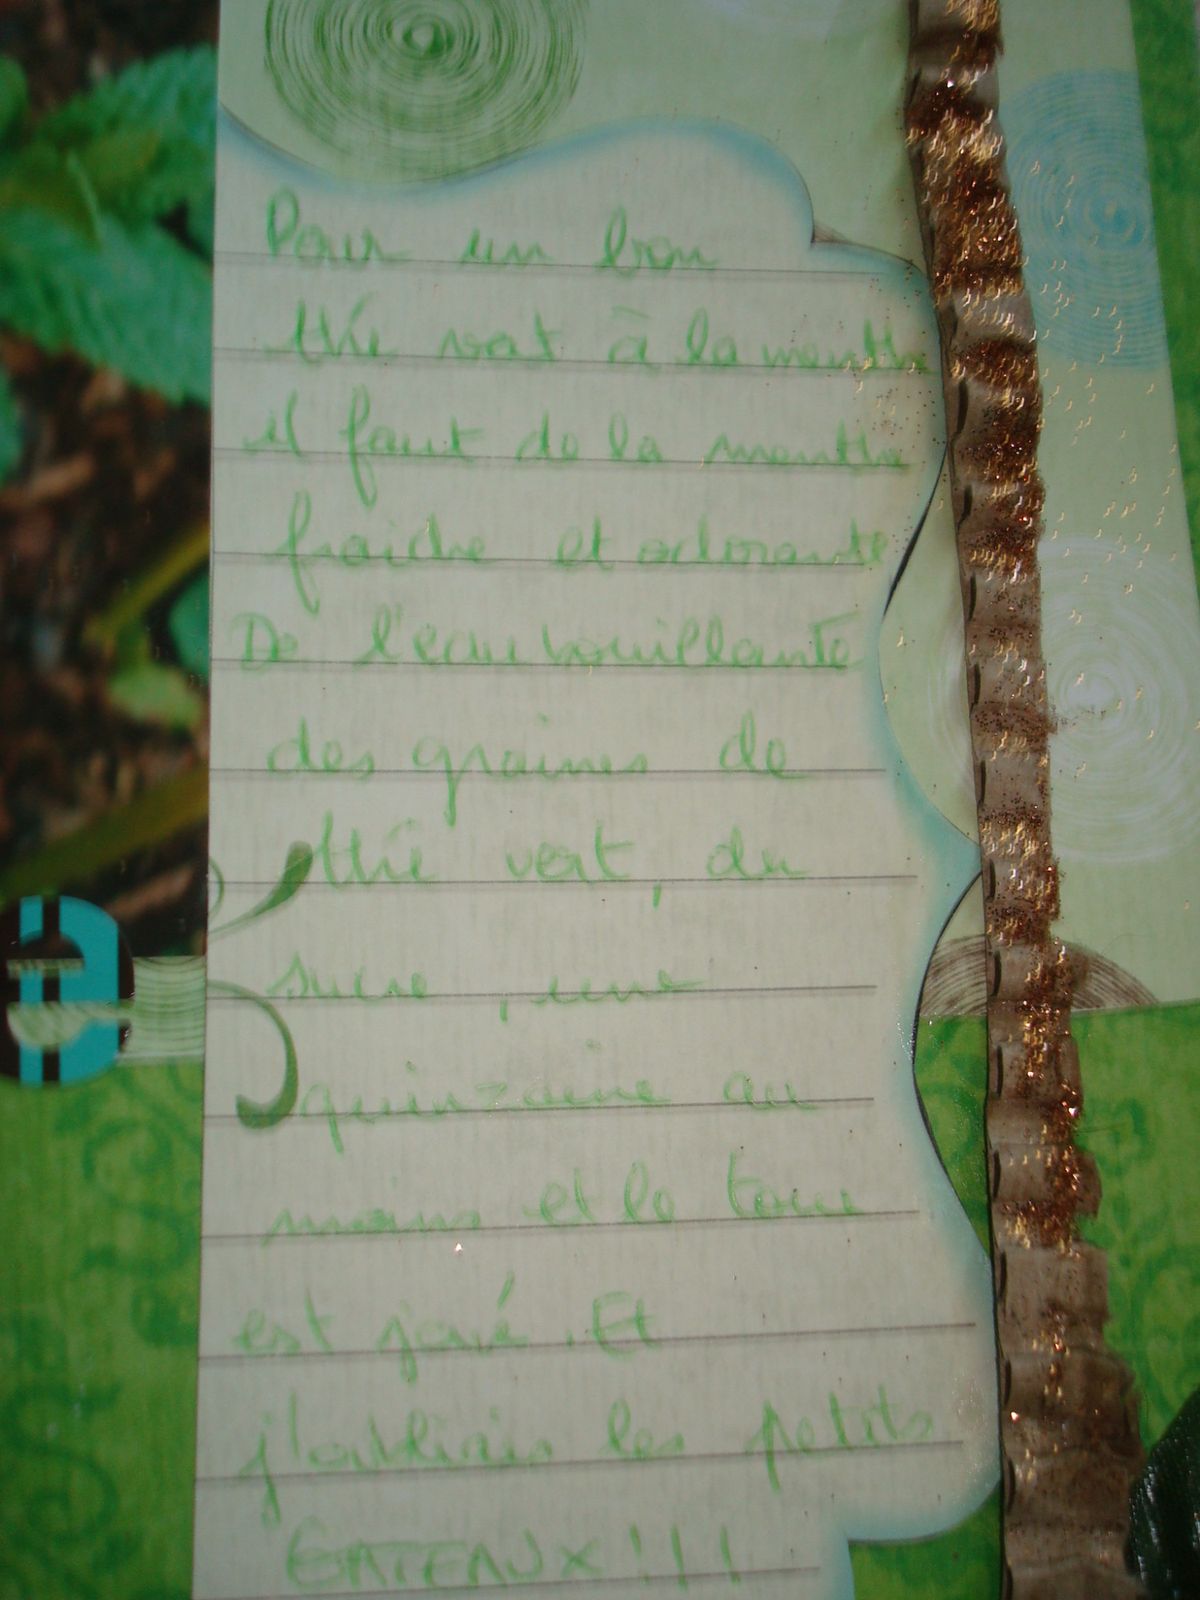 Pour un bon
thé vert à la menthe
il faut de la menthe
fraiche et odorante
De l'eau bouillante
des graines de
thé vert, du
sucre, une
quinzaine au
moins et le tour
est joué. Et
j'oubliais les petits
GATEAUX!!!